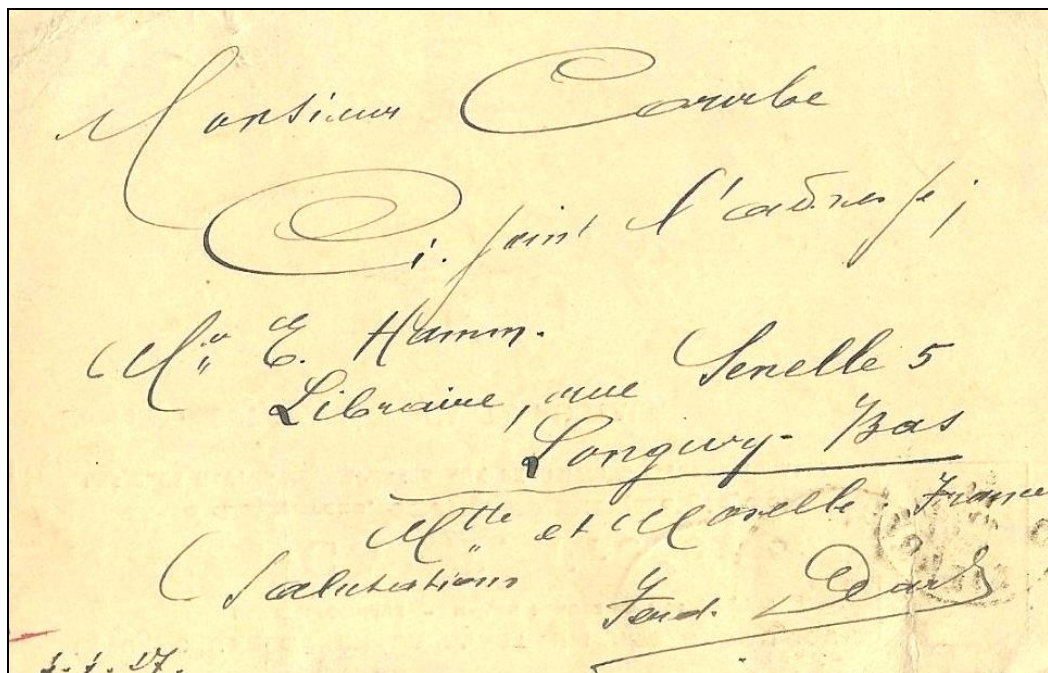 Monsieur Courbe
Ci-joint l'adresse;
E. Hamm.
Libraire, rue Senelle 5
Longwy-Bas
Mtte et Moselle. France
Salutations
Ferd.